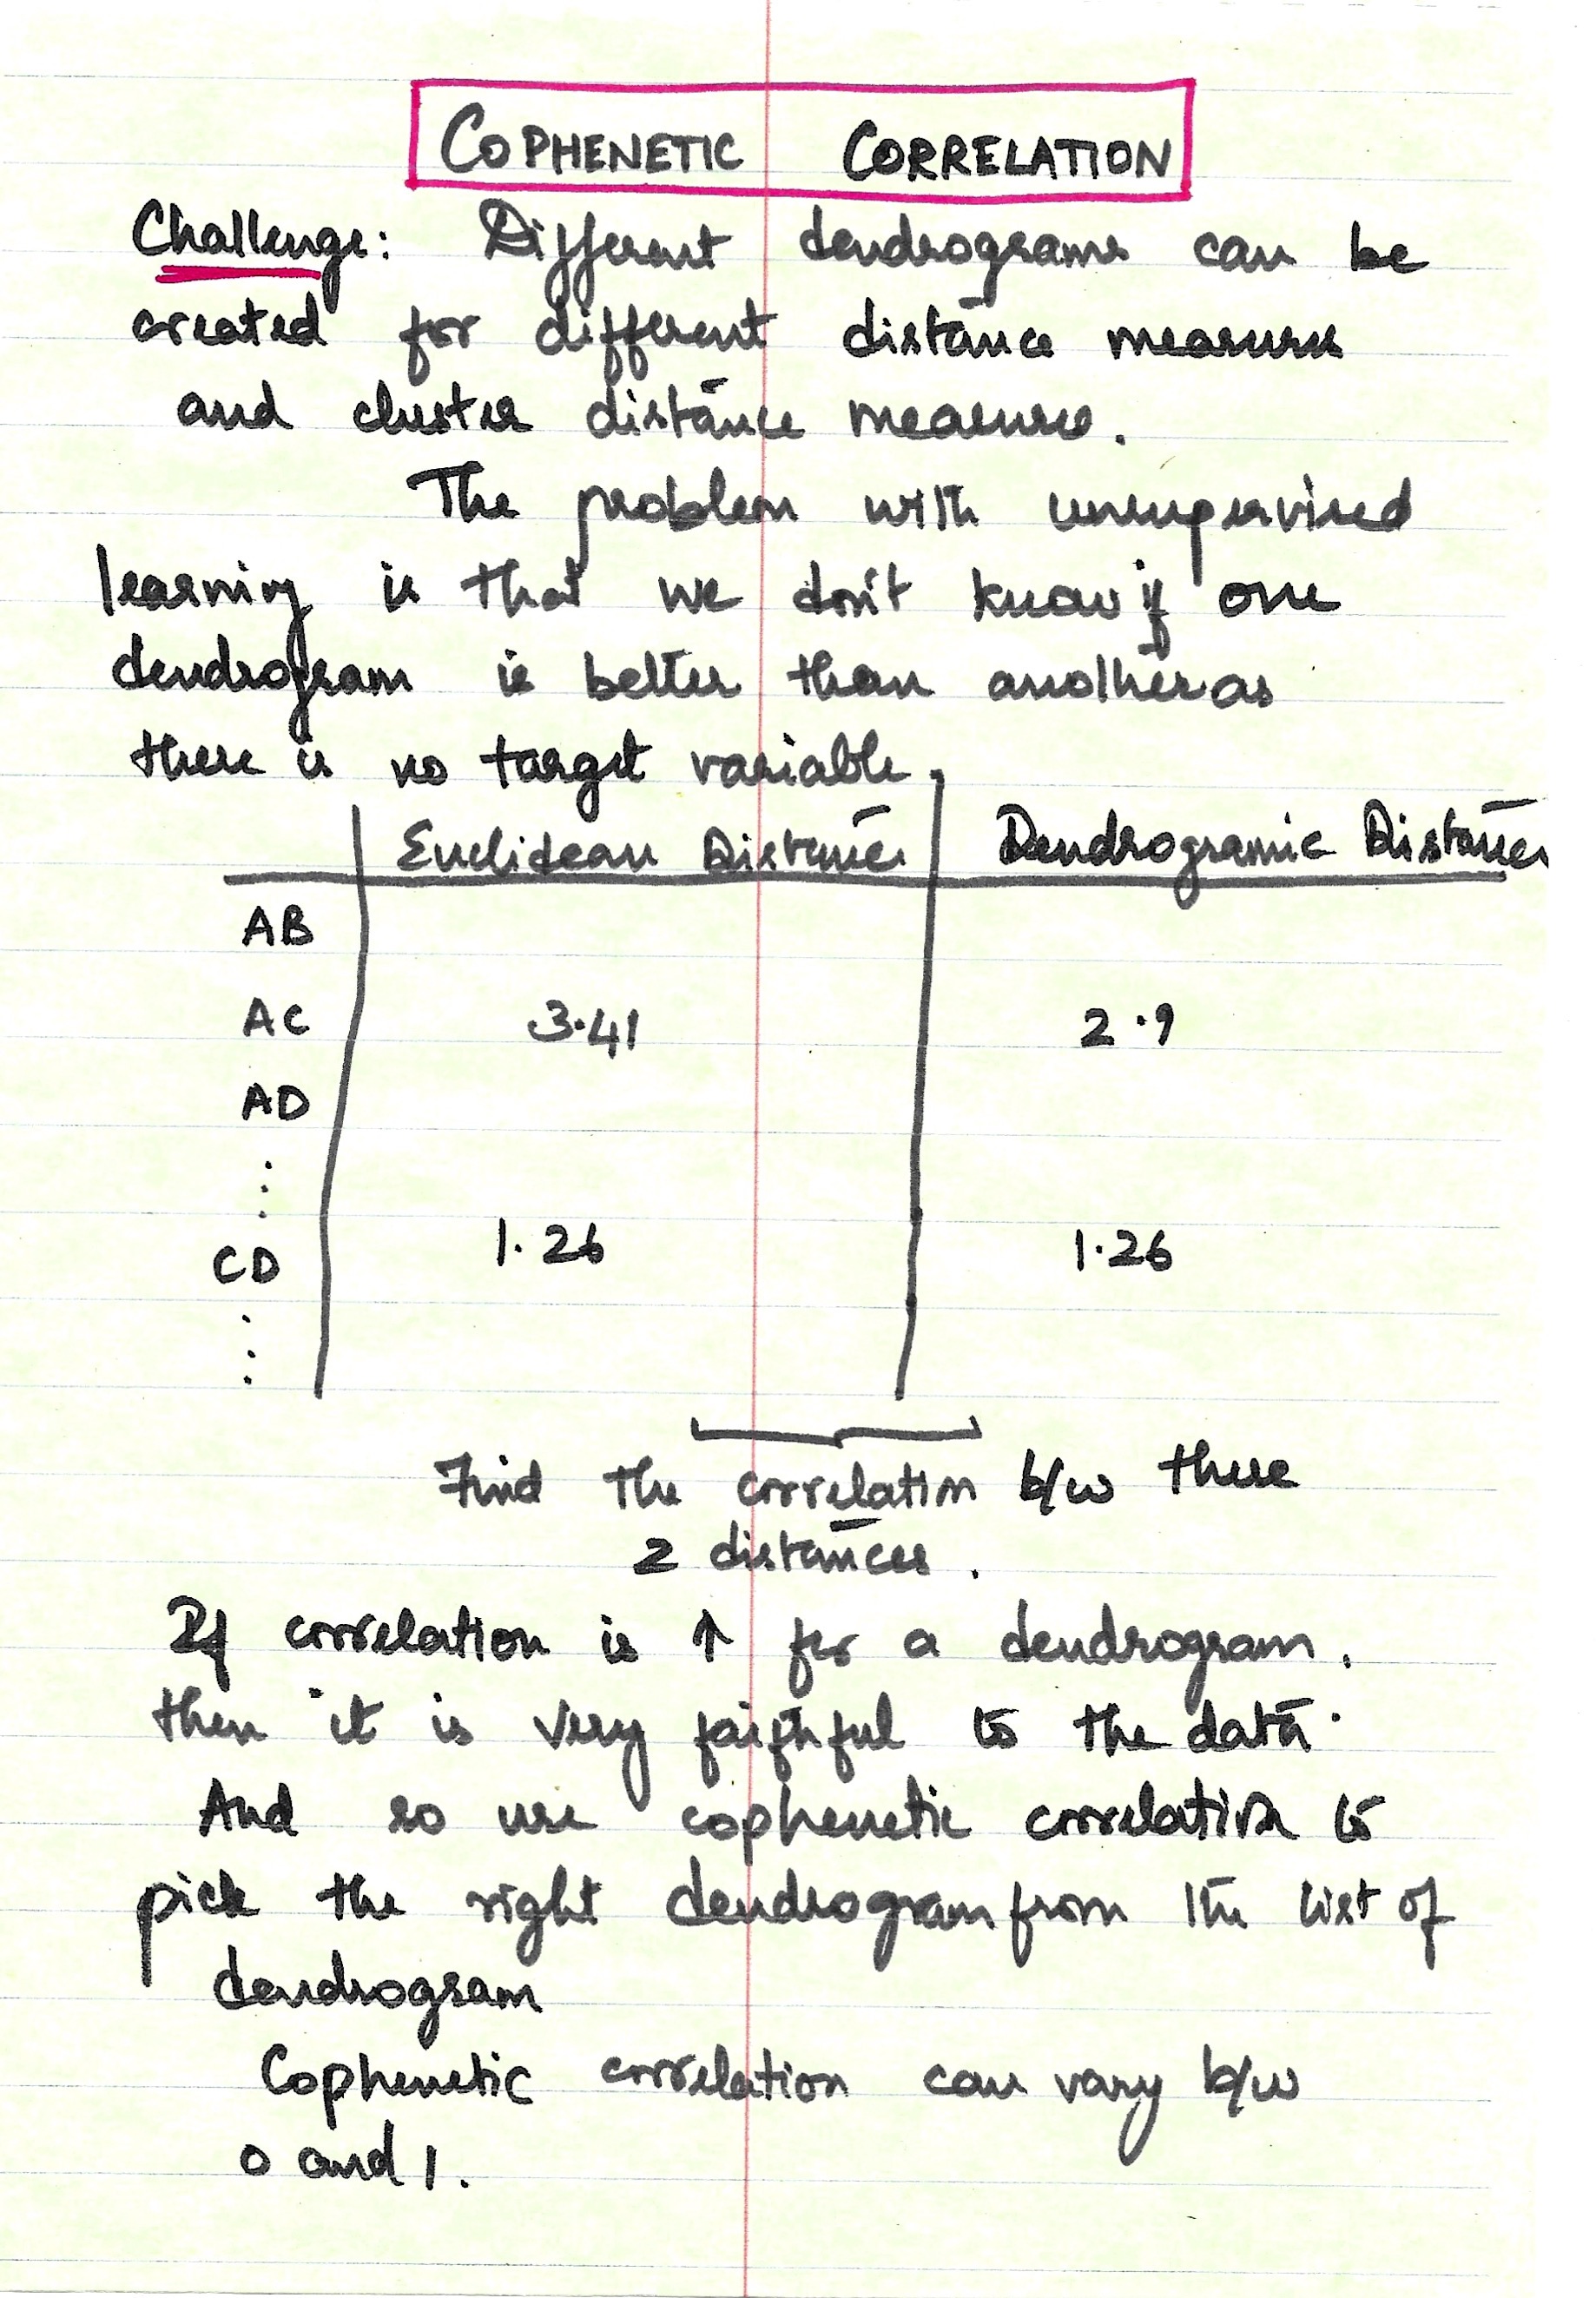 COPHENETIC CORRELATION
Challenge: Different dendrograms can be
created for different distance measures
and cluster distance measures.
The problem with unsupervised
learning is that we don't know if one
dendrogram is better than another as
there is no target variable.
Euclidean Distances Dendrogramic Distances
AB
AC 3.41 2.9
AD
⋮
CD 1.26 1.26
⋮
Find the correlation b/w these
2 distances.
If correlation is ↑ for a dendrogram,
then it is very faithful to the data.
And so use cophenetic correlation to
pick the right dendrogram from the list of
dendrogram
Cophenetic correlation can vary b/w
0 and 1.